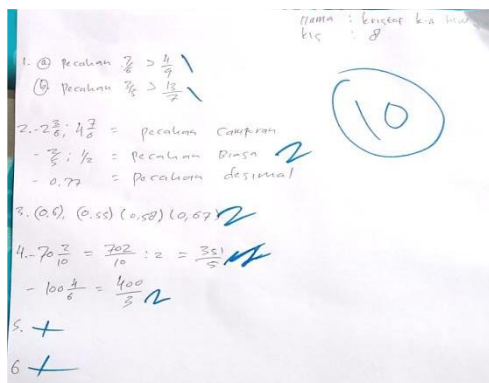 Nama : kristof
kls : 8
10
1. (a) Pecahan 2/6 > 4/9
(b) Pecahan 2/3 > 13/7
2. - 2 3/6 ; 4 7/6 = pecahan campuran
- 2/5 ; 1/2 = pecahan Biasa 2
- 0,77 = pecahan desimal
3. (0,6), (0,55) (0,58) (0,67) 2
4. - 70 2/10 = 702/10 : 2 = 351/5
- 100 4/6 = 400/3 2
5. +
6 +